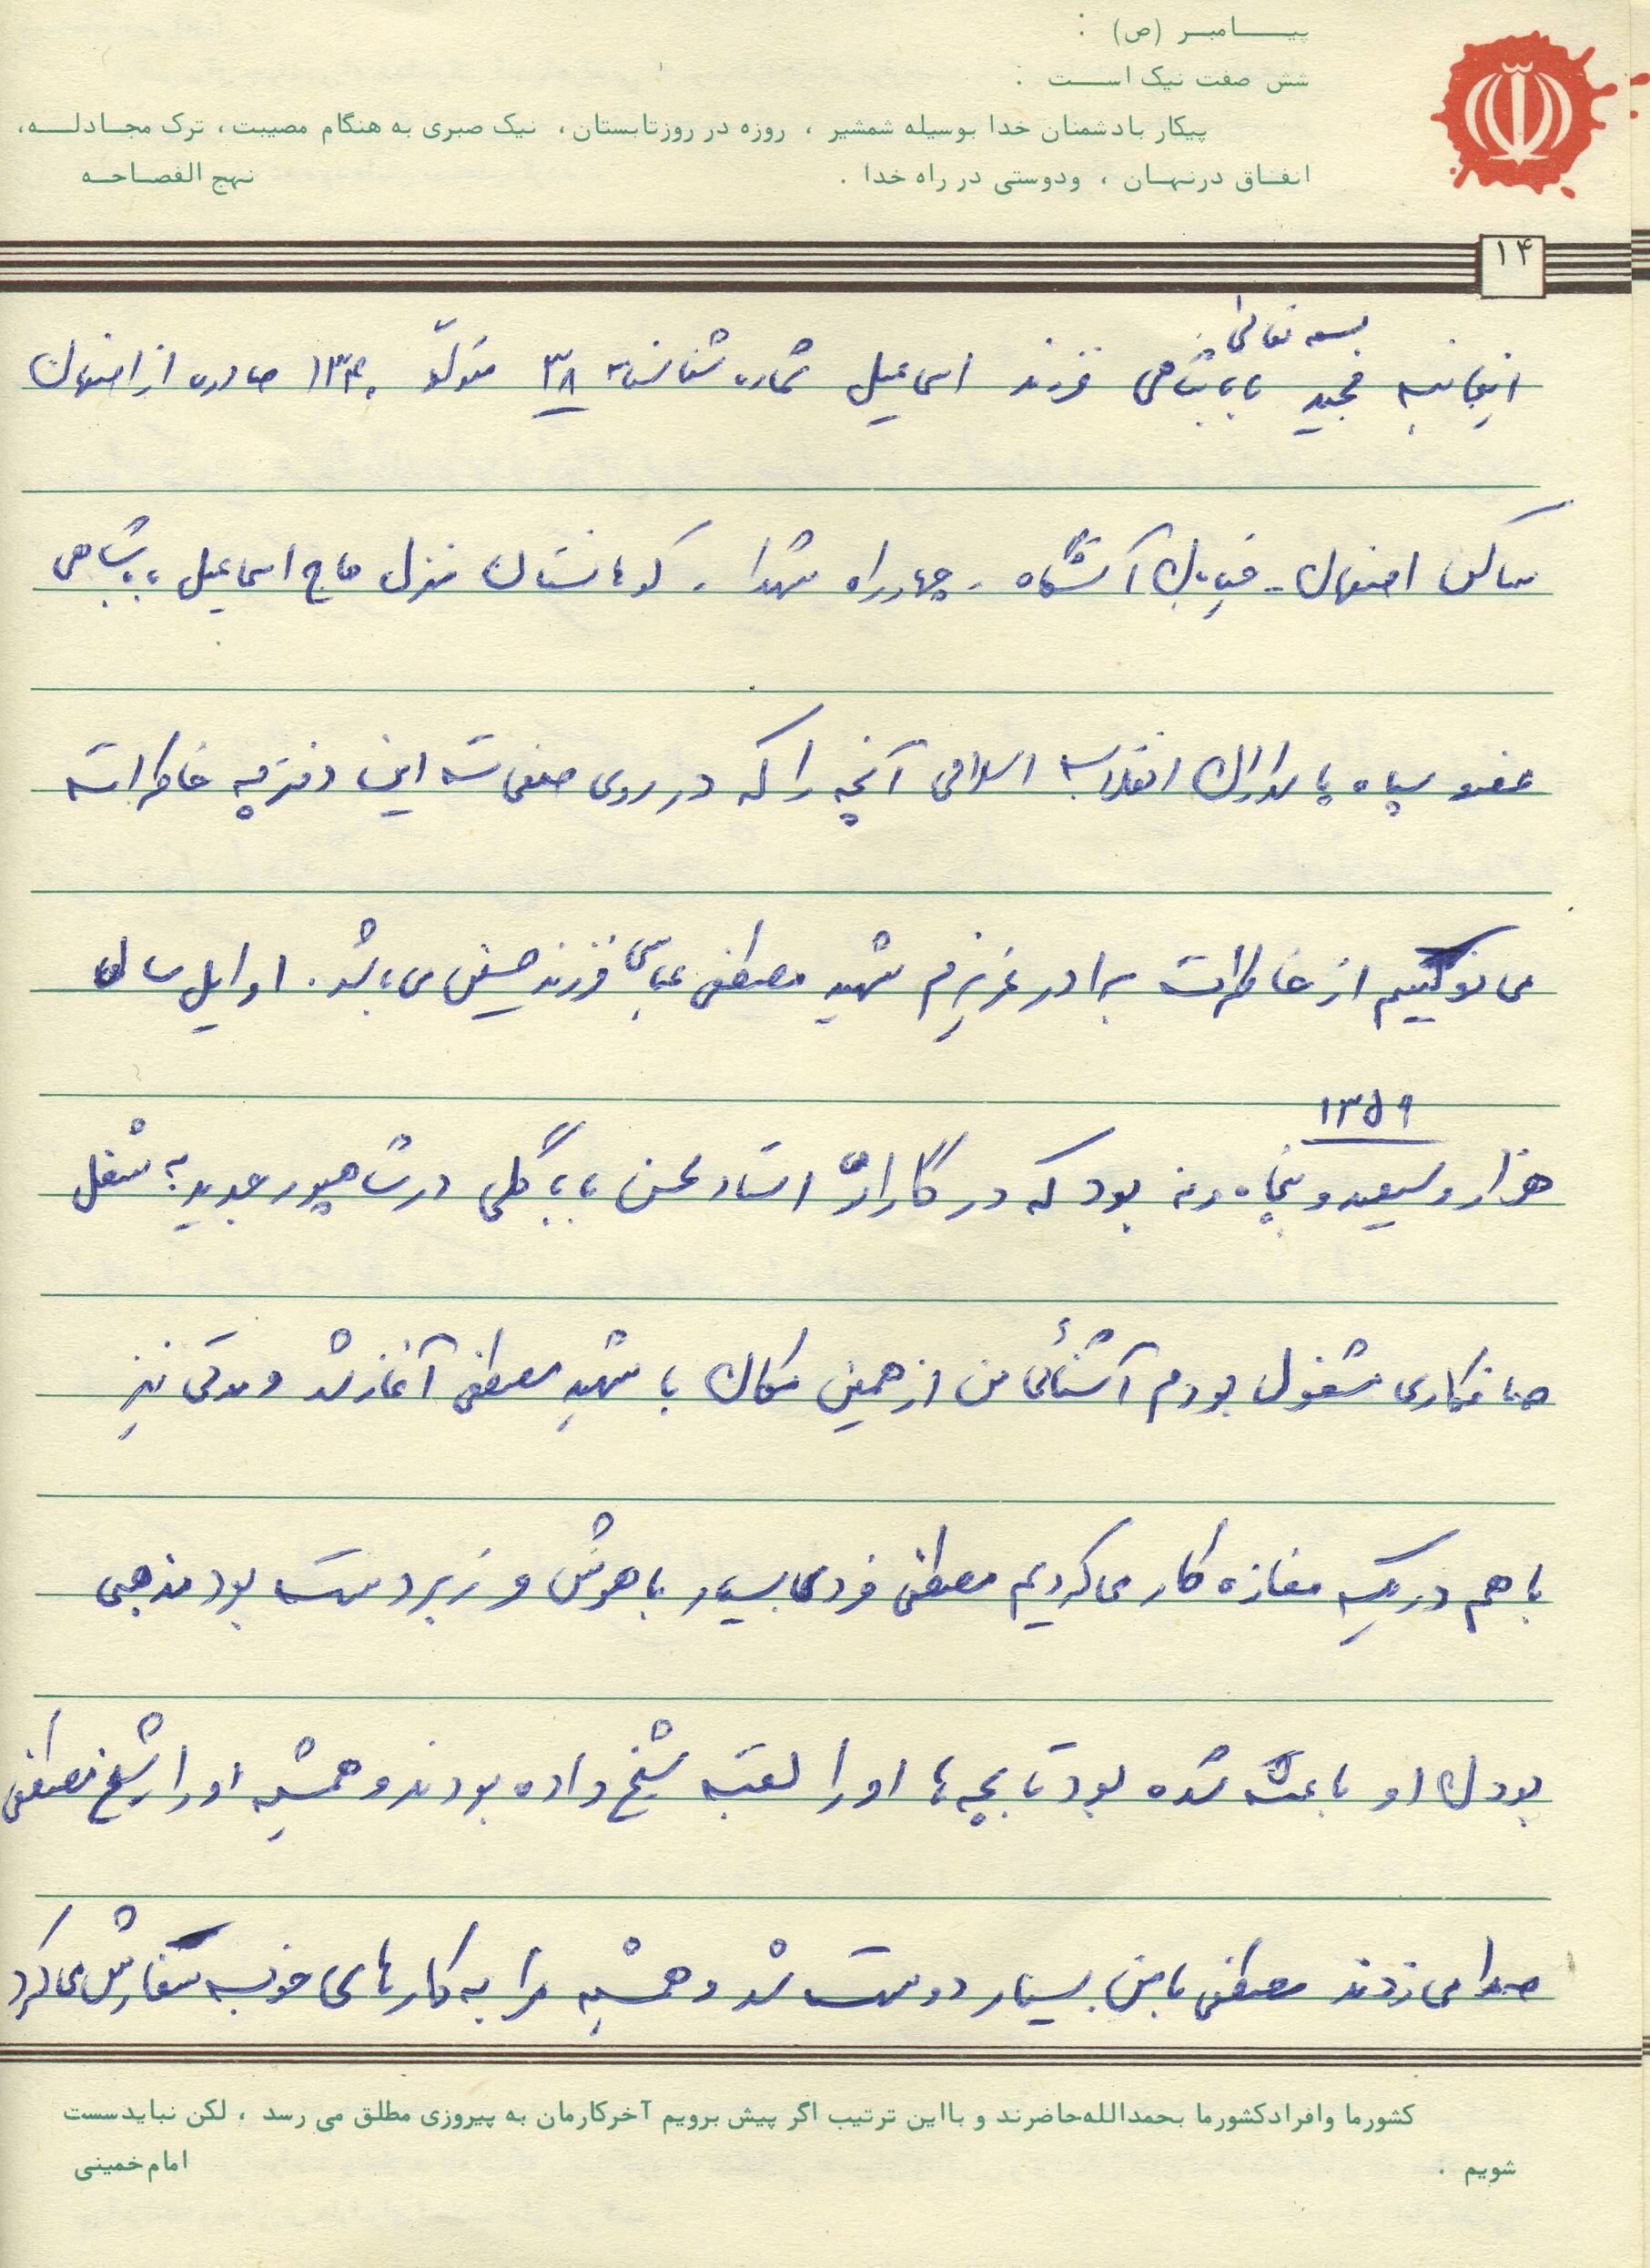 پیامبر (ص) :
شش صفت نیک است :
پیکار بادشمنان خدا بوسیله شمشیر ، روزه در روزتابستان ، نیک صبری به هنگام مصیبت ، ترک مجادله ،
انفاق درنهان ، ودوستی در راه خدا . نهج الفصاحه
۱۴
بسمه تعالی
اینجانب مجید باباشاهی فرزند اسماعیل شماره شناسنامه ۳۸ متولد ۱۳۴۰ صادره از اصفهان
ساکن اصفهان - خیابان آتشگاه - چهارراه شهدا - کوهانستان منزل حاج اسماعیل باباشاهی
عضو سپاه پاسداران انقلاب اسلامی آنچه را که در روی صفحات این دفترچه خاطرات
می نویسم از خاطرات برادر عزیزم شهید مصطفی عباسی فرزند حسینعلی می باشد . اوایل سال
۱۳۵۹
هزار و سیصد و پنجاه و نه بود که در گاراژ استاد محسن باباگلی در شاهپور جدید به شغل
صافکاری مشغول بودم آشنائی من از همین مکان با شهید مصطفی آغاز شد و مدتی نیز
با هم در یک مغازه کار می کردیم مصطفی فردی بسیار باهوش و زبردست بود مذهبی
بودن او باعث شده بود تا بچه ها او را لقب شیخ داده بودند و همیشه او را شیخ مصطفی
صدا می زدند مصطفی با من بسیار دوست شد و همیشه مرا به کارهای خوب سفارش می کرد
کشورما وافرادکشورما بحمدالله حاضرند و بااین ترتیب اگر پیش برویم آخرکارمان به پیروزی مطلق می رسد ، لکن نبایدسست
شویم . امام خمینی